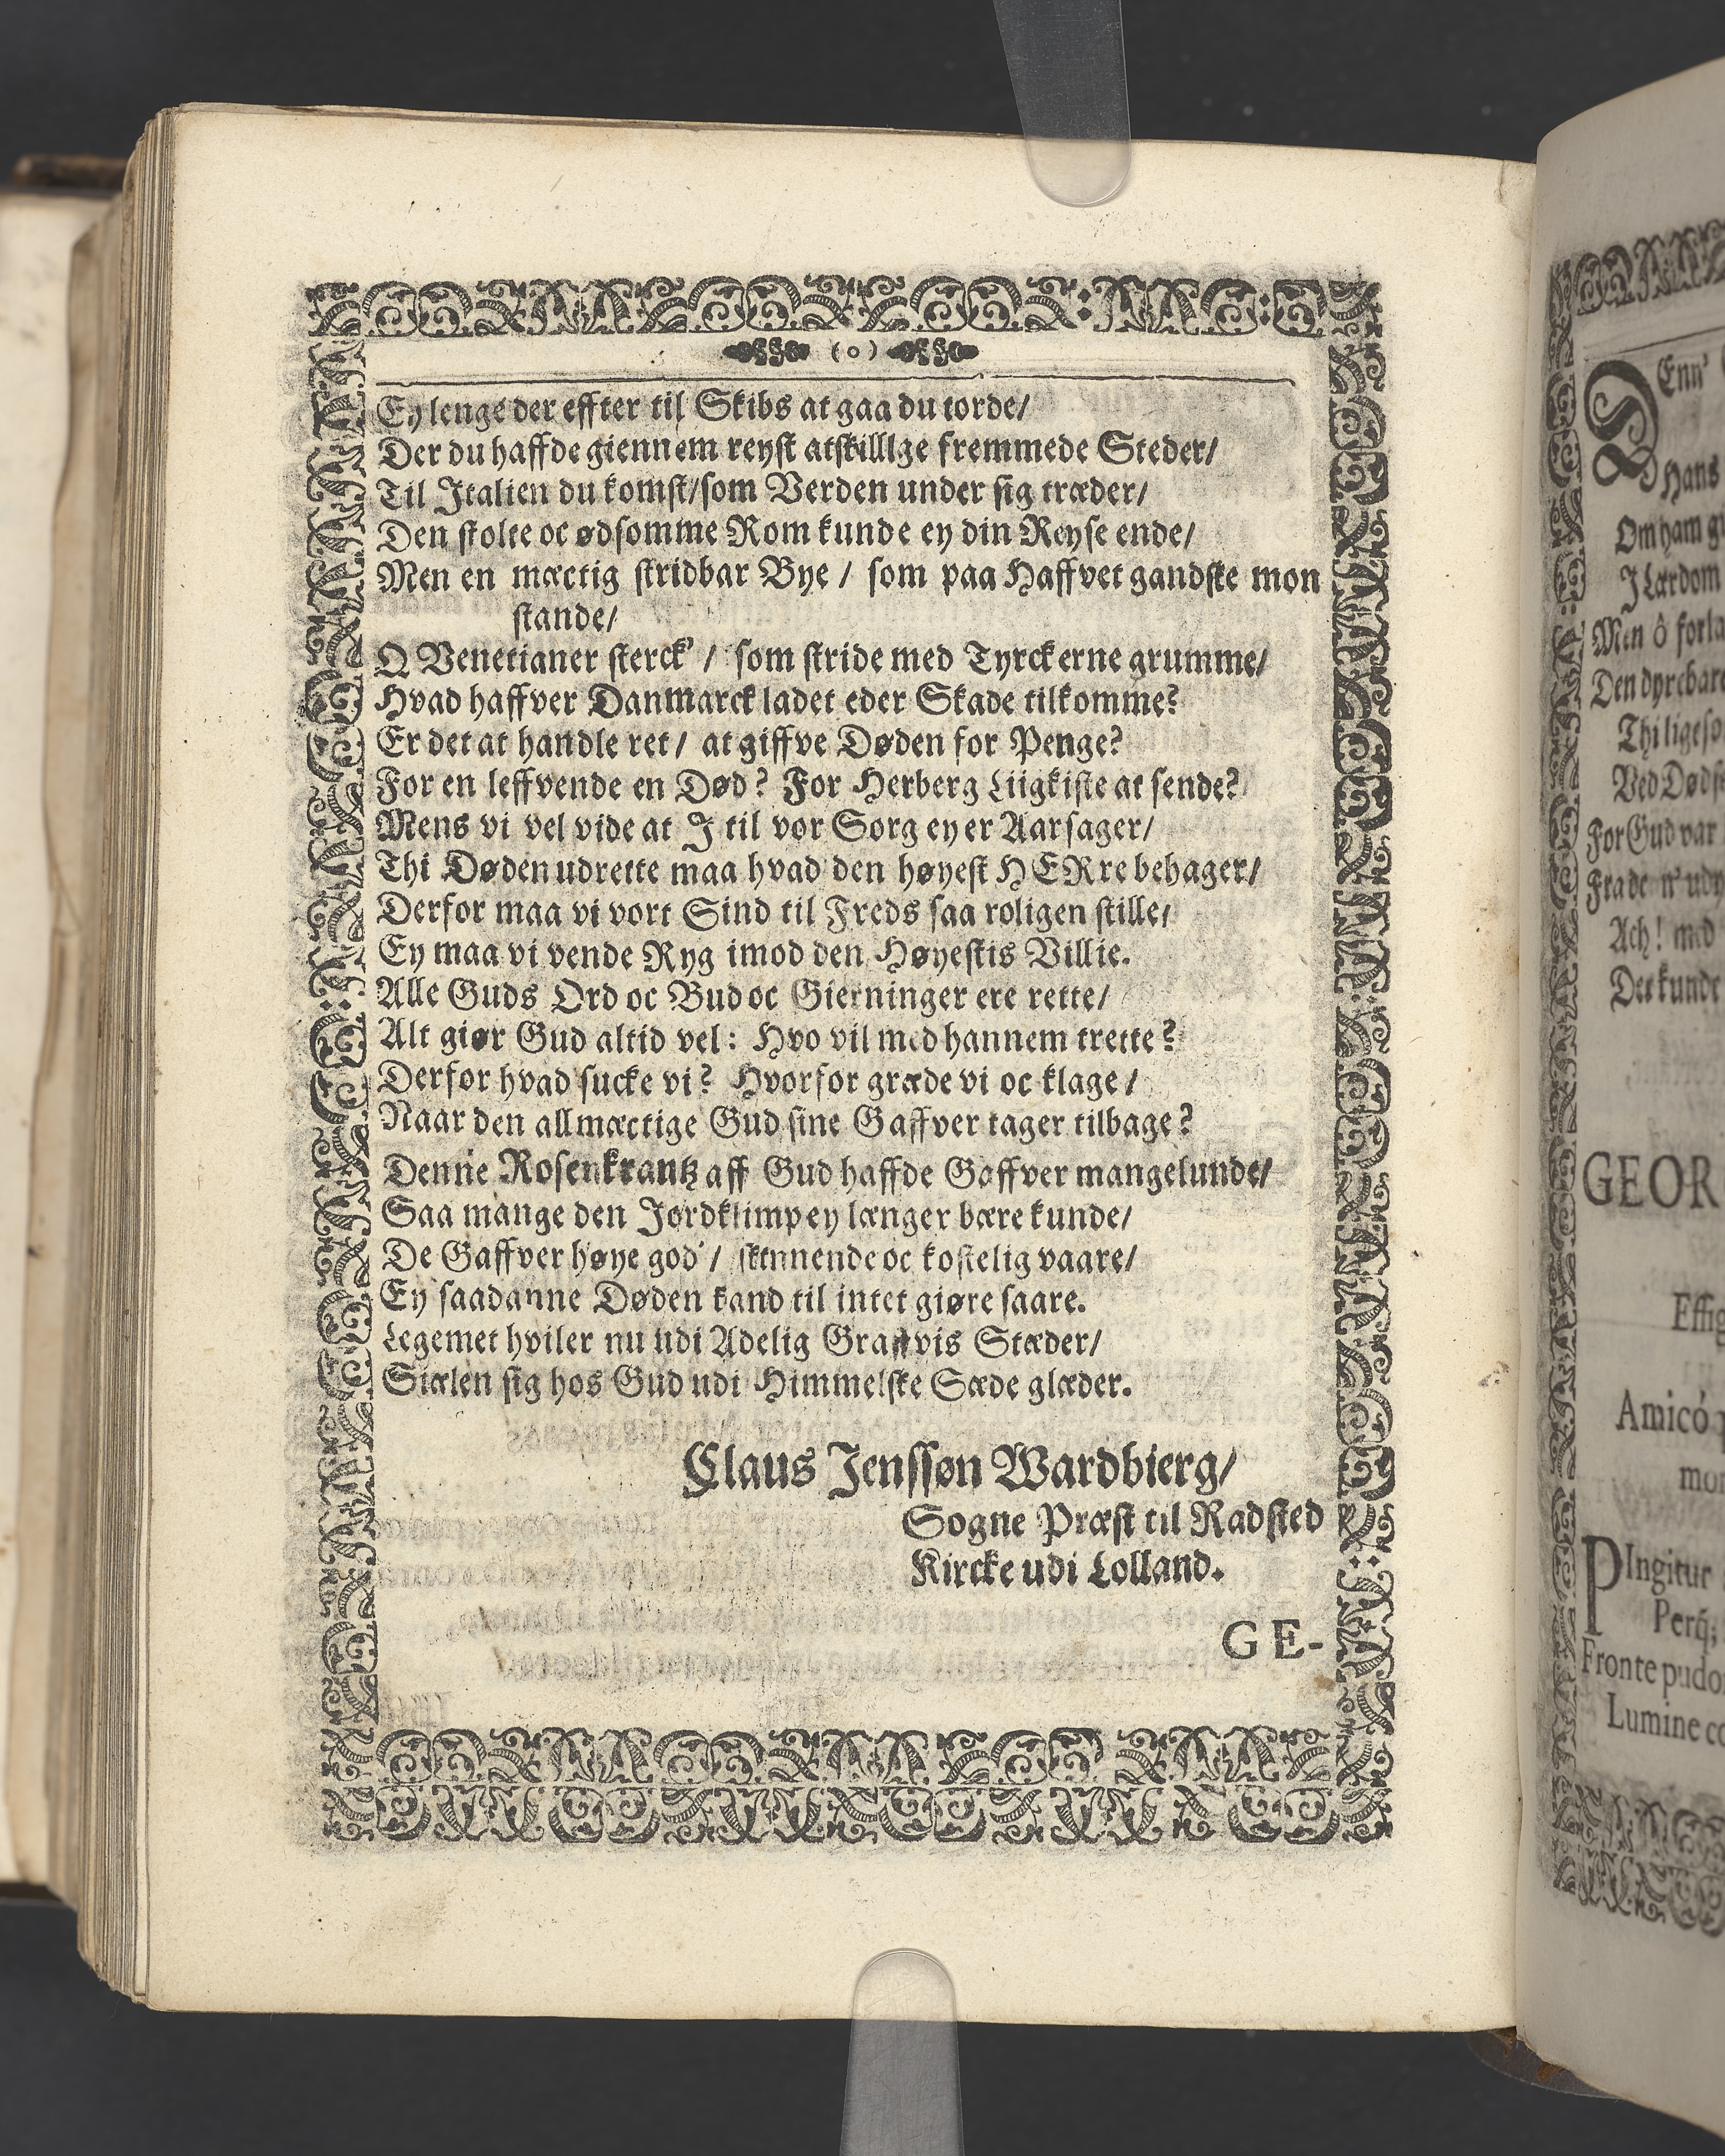 (o)
Ey lenge der effter til Skibs at gaa du torde/
Der du haffde giennem reyst atskilllge fremmede Steder/
Til Italien du komst/som Verden under sig træder/
Den stolte oc ødsomme Rom kunde ey din Reyse ende/
Men en mæctig stridbar Bye / som paa Haffvet gandske mon
stande/
O Venetianer sterck' / som stride med Tyrckerne grumme/
Hvad haffver Danmarck ladet eder Skade tilkomme?
Er det at handle ret / at giffve Døden for Penge?
For en leffvende en Død? For Herberg Liigkiste at sende?
Mens vi vel vide at I til vor Sorg ey er Aarsager/
Thi Døden udrette maa hvad den høyest HERre behager/
Derfor maa vi vort Sind til Freds saa roligen stille/
Ey maa vi vende Ryg imod den Høyestis Villie.
Alle Guds Ord oc Bud oc Gierninger ere rette/
Alt giør Gud altid vel: Hvo vil med hannem trette?
Derfor hvad sucke vi? Hvorfor græde vi oc klage /
Naar den allmæctige Gud sine Gaffver tager tilbage?
Denne Rosenkrantz aff Gud haffde Gaffver mangelunde/
Saa mange den Jordklimp ey længer bære kunde/
De Gaffver høye god' / skinnende oc kostelig vaare/
Ey saadanne Døden kand til intet giøre saare.
Legemet hviler nu udi Adelig Graffvis Stæder/
Siælen sig hos Gud udi Himmelske Sæde glæder.
Claus Jenssøn Wardbierg/
Sogne Præst til Radsted
Kircke udi Lolland.
GE-
Denn'
Hans
Om ham
I Lærdom
Men ô forla
Den dyrebare
Thi ligeso
Ved Døds
For Gud var
Fra de n' udv
Ach! med
Der kunde
GEOR
Effig
Amicó
mor
PIngitur
Perq́;
Fronte pudo
Lumine co